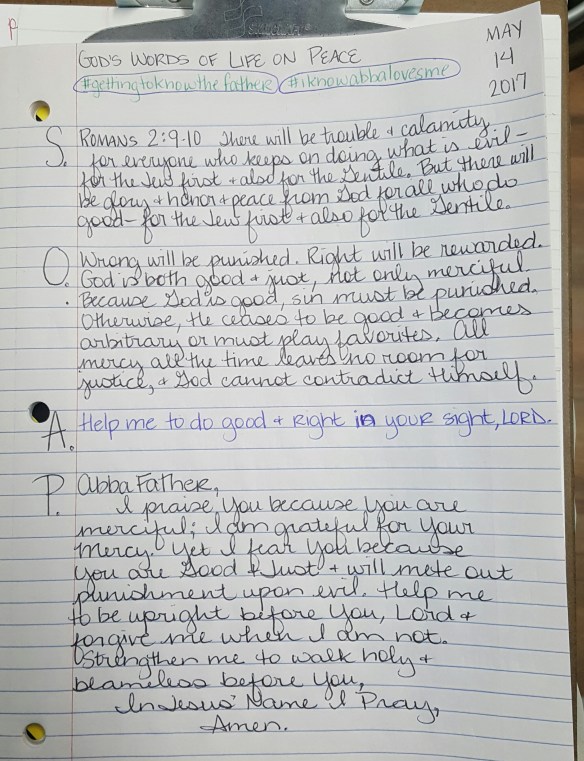 P
GOD'S WORDS OF LIFE ON PEACE
MAY
14
2017
#gettingtoknowthefather #iknowabbalovesme
S. ROMANS 2:9-10 There will be trouble + calamity
for everyone who keeps on doing what is evil-
for the Jew first + also for the Gentile. But there will
be glory + honor + peace from God for all who do
good- for the Jew first + also for the Gentile.
O. Wrong will be punished. Right will be rewarded.
God is both good + just, not only merciful.
Because God is good, sin must be punished.
Otherwise, He ceases to be good + becomes
arbitrary or must play favorites. All
mercy all the time leaves no room for
justice, + God cannot contradict Himself.
A. Help me to do good + Right in your sight, LORD.
P. Abba Father,
I praise You because You are
merciful; I am grateful for Your
mercy. Yet I fear You because
You are Good + Just + will mete out
punishment upon evil. Help me
to be upright before You, Lord +
forgive me when I am not.
Strengthen me to walk holy +
blameless before You,
In Jesus' Name I Pray,
Amen.